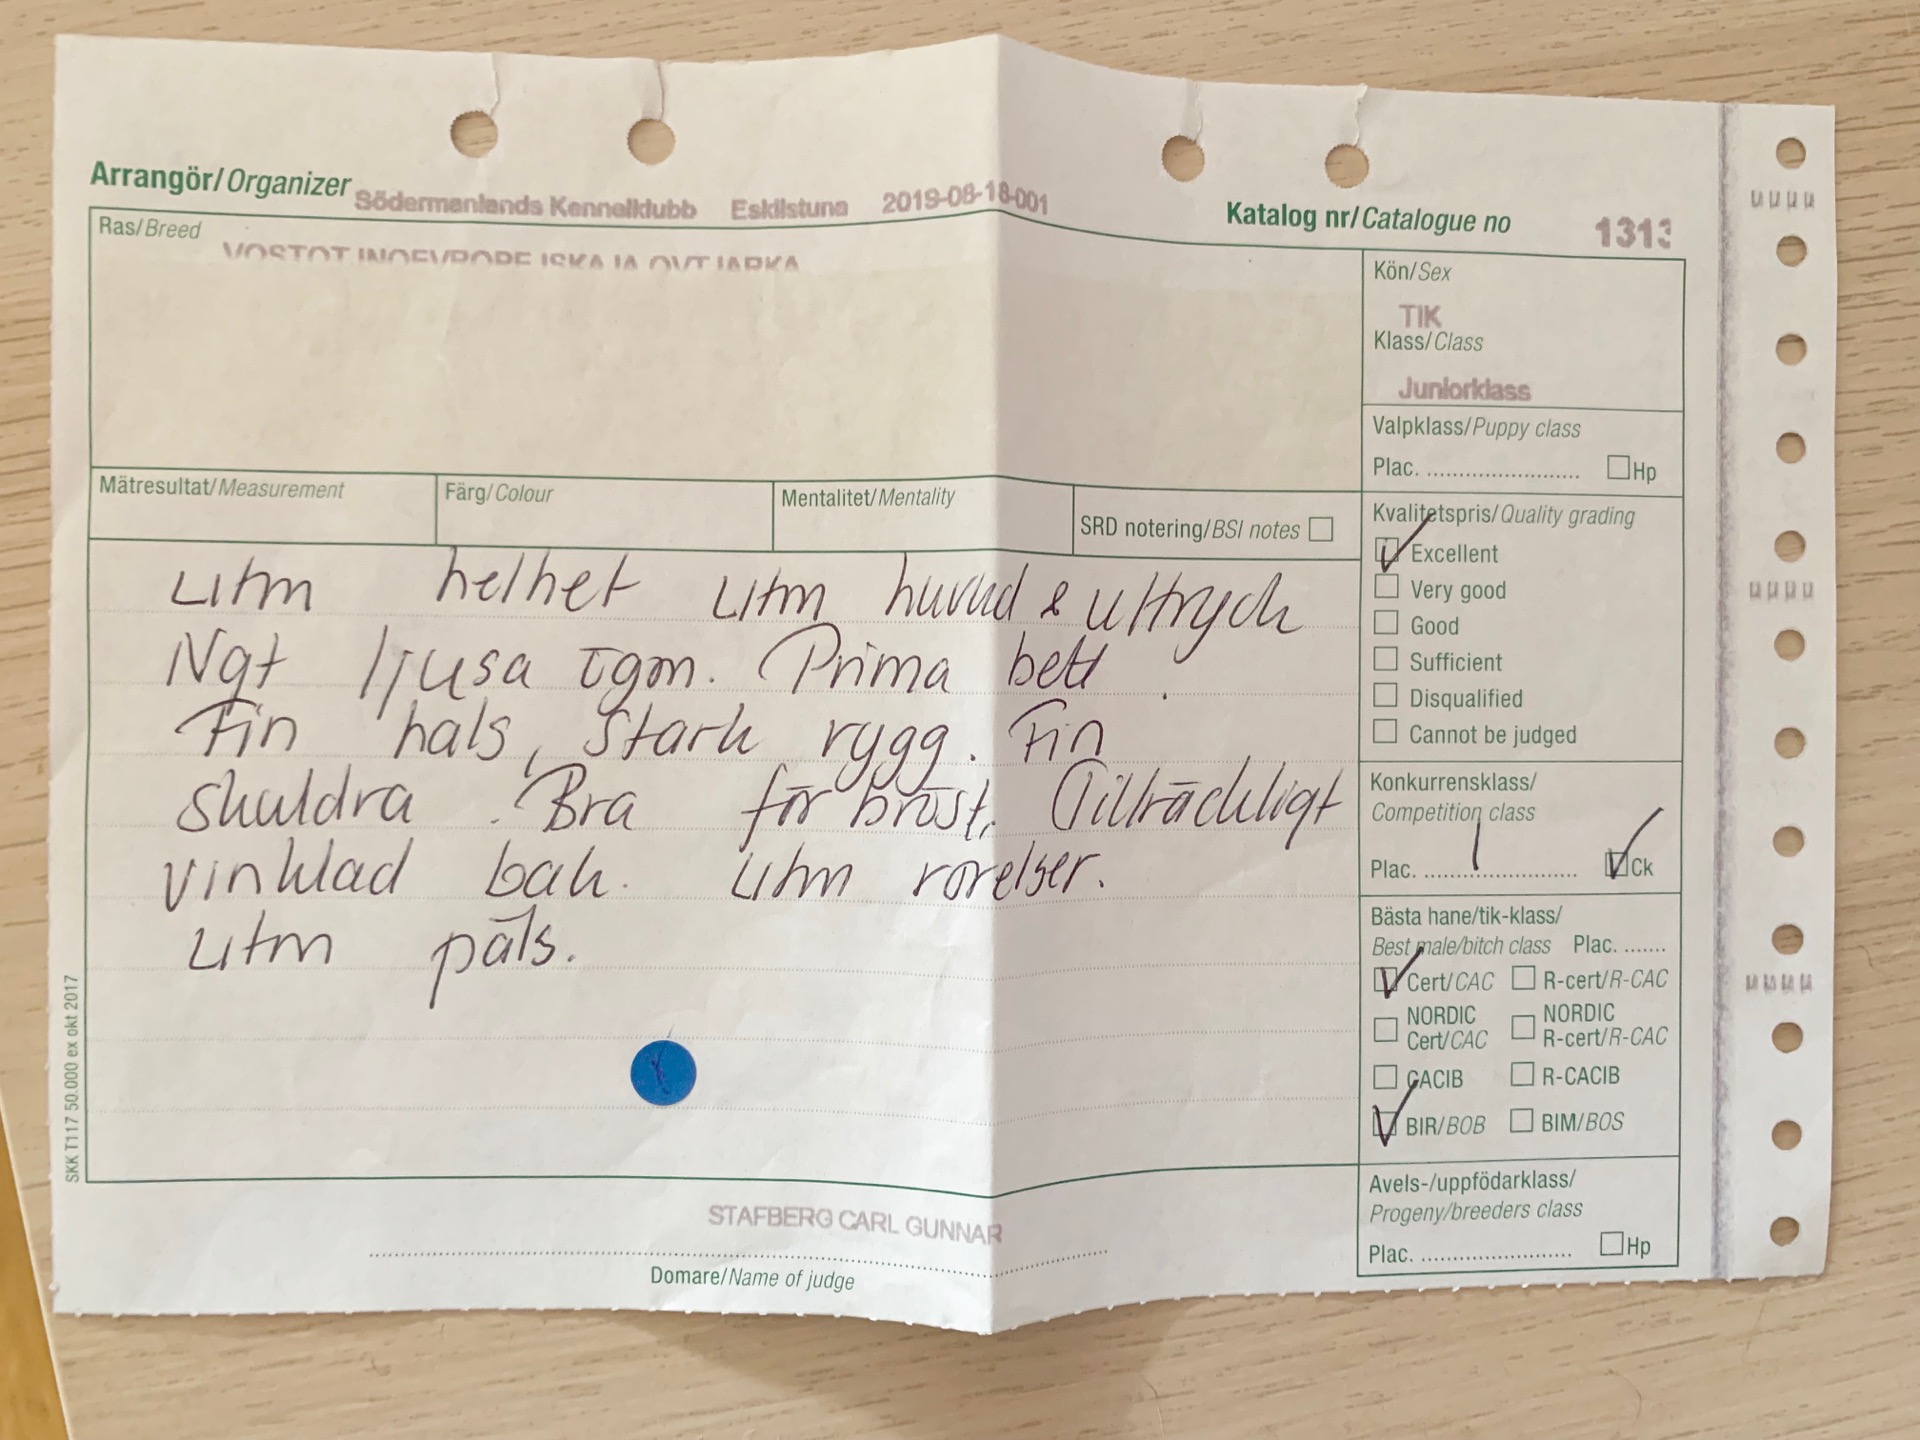 Arrangör/Organizer Södermanlands Kennelklubb Eskilstuna 2019-08-18-001
Katalog nr/Catalogue no 1313
Ras/Breed VOSTOTJNOEVROPEJSKAJA OVTJARKA
Kön/Sex
TIK
Klass/Class
Juniorklass
Valpklass/Puppy class
Plac. ........................... Hp
Mätresultat/Measurement
Färg/Colour
Mentalitet/Mentality
SRD notering/BSI notes
Utm helhet Utm huvud & uttryck
Ngt ljusa ögon. Prima bett.
Fin hals, Stark rygg. Fin
skuldra. Bra för bröst. Tillräckligt
vinklad bak. Utm rörelser.
Utm päls.
Kvalitetspris/Quality grading
Excellent
Very good
Good
Sufficient
Disqualified
Cannot be judged
Konkurrensklass/
Competition class
Plac. 1 Ck
Bästa hane/tik-klass/
Best male/bitch class Plac. .......
Cert/CAC R-cert/R-CAC
NORDIC Cert/CAC NORDIC R-cert/R-CAC
CACIB R-CACIB
BIR/BOB BIM/BOS
Avels-/uppfödarklass/
Progeny/breeders class
Plac. ........................... Hp
STAFBERG CARL GUNNAR
Domare/Name of judge
SKK T117 50.000 ex okt 2017